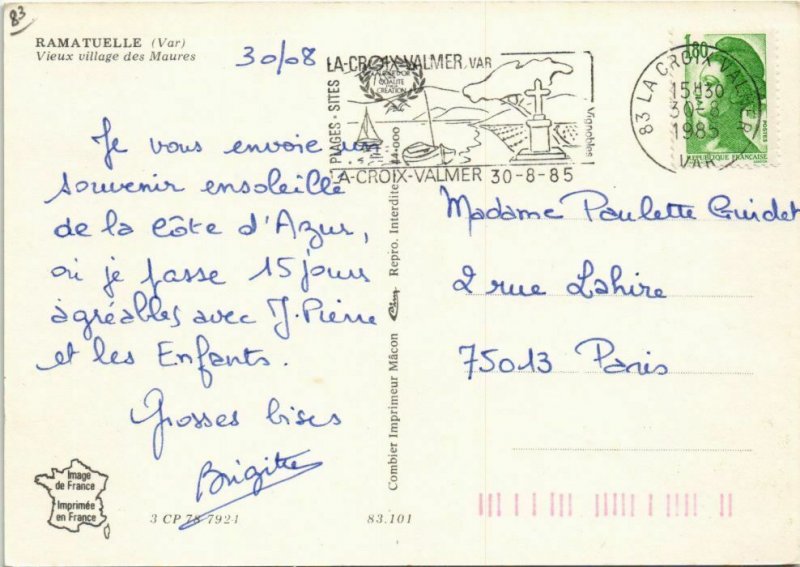 83
RAMATUELLE (Var)
Vieux village des Maures
30/08
LA-CROIX-VALMER, VAR
PLAGES - SITES
QUALITE
CREATION
44.000
Vignobles
LA-CROIX-VALMER 30-8-85
83 LA CROIX VALMER
15H30
30-8
1985
VAR
1,80
POSTES
REPUBLIQUE FRANÇAISE
Je vous envoie un
souvenir ensoleillé
de la Côte d'Azur,
où je passe 15 jours
agréables avec J. Pierre
et les Enfants.
Grosses bises
Brigitte
Madame Paulette Guidet
2 rue Lahire
75013 Paris
Combier Imprimeur Mâcon Cim Repro. Interdite
Image
de France
Imprimée
en France
3 CP 78 7924
83.101